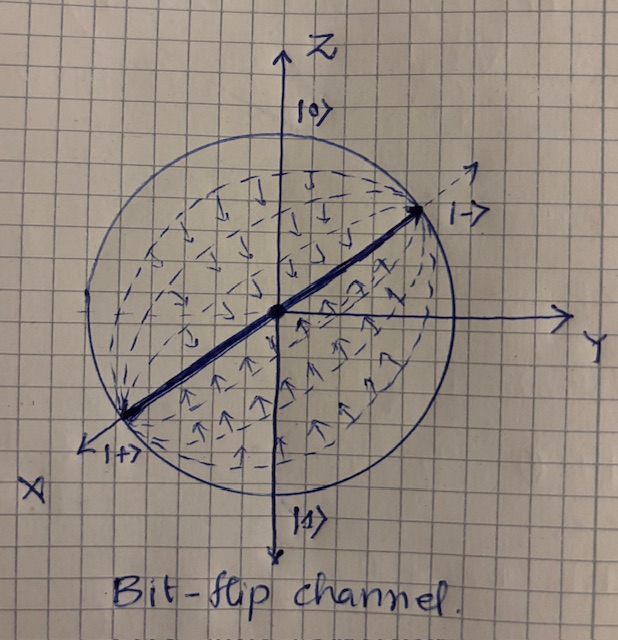 Z
|0>
|->
Y
|+>
X
|1>
Bit-flip channel.